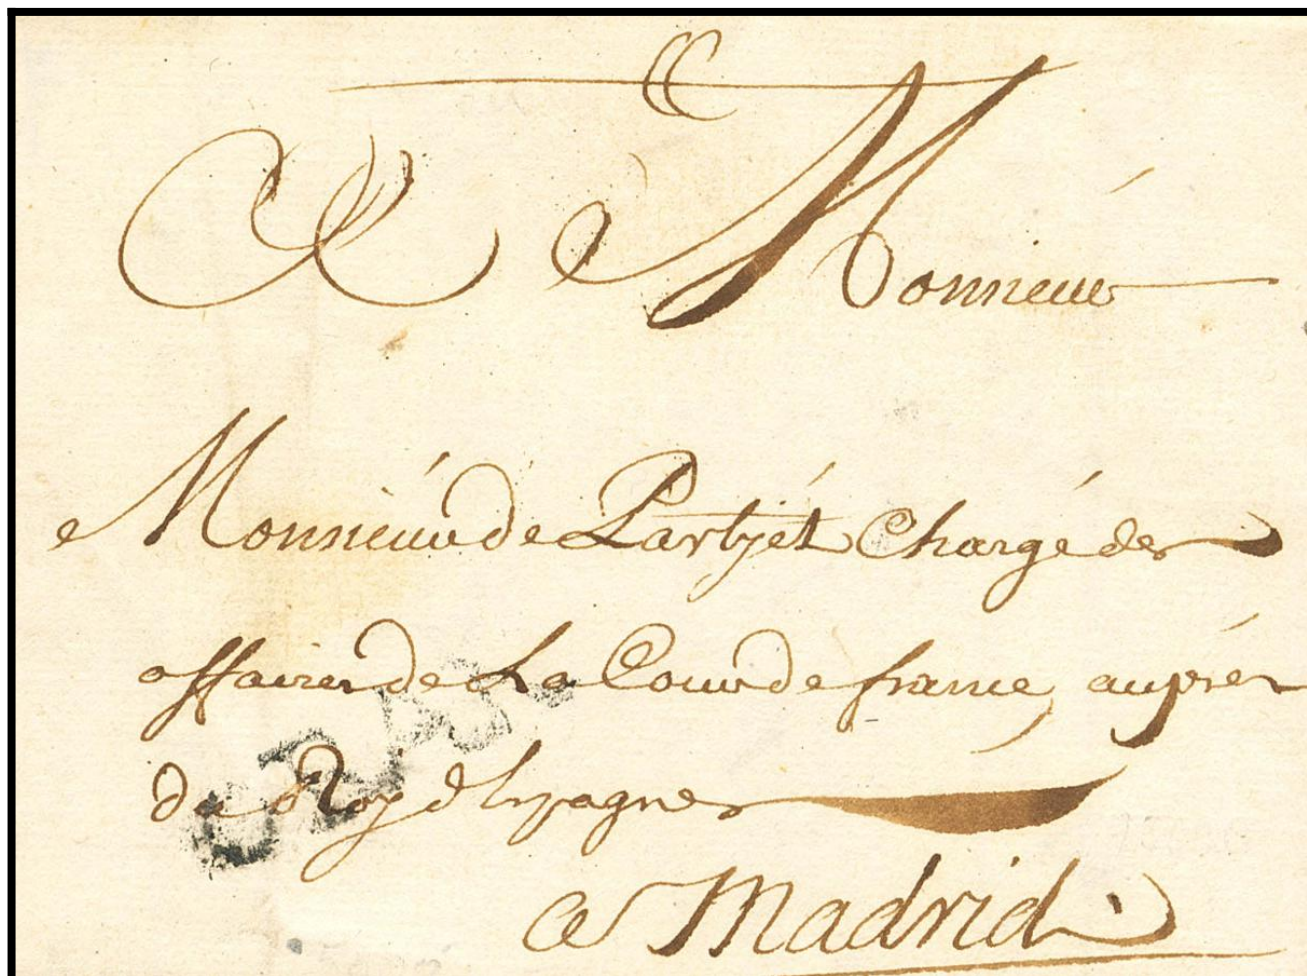 A Monsieur
Monsieur de Partyét Chargé des
affaires de La Cour de france, auprés
du Roy d'Espagne
a Madrid